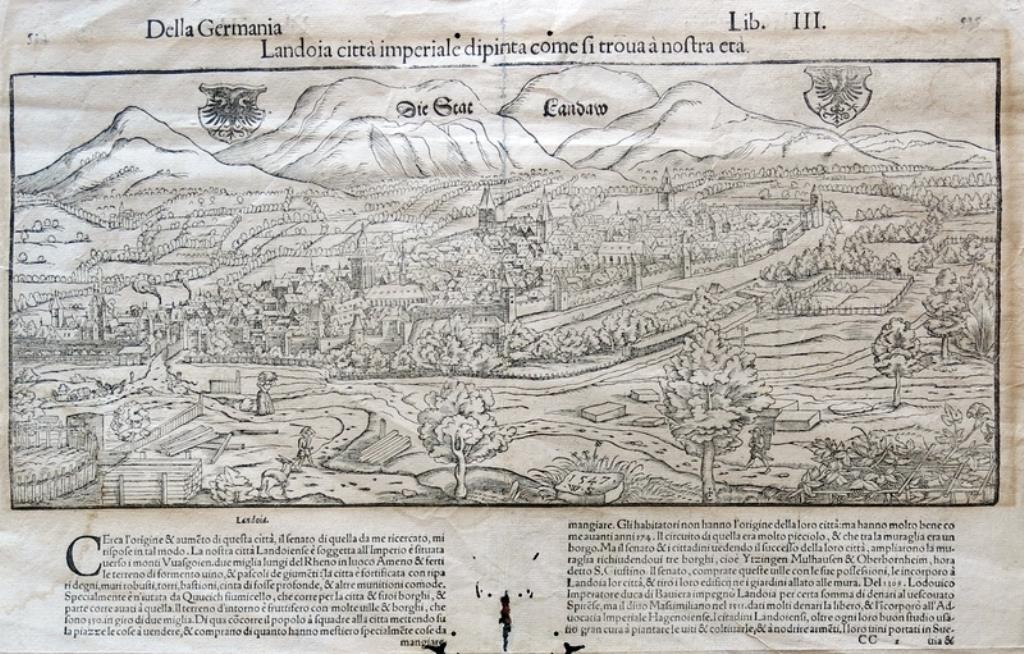 Della Germania
Lib. III.
Landoia città imperiale dipinta come ſi troua à noſtra età.
Die Stat Landaw
1547
Landoia.
CErca l'origine & aumēto di queſta città, il ſenato di quella da me ricercato, mi
riſpoſe in tal modo. La noſtra città Landoienſe è ſoggetta all'Imperio è ſituata
uerſo i monti Vuaſgoien. due miglia lungi del Rheno in luoco Ameno & ferti
le terreno di formento uino, & paſcoli de giumēti: la citta è fortificata con ripa
ri degni, muri robuſti, torri, baſtioni, cinta di foſſe profonde, & altre munitioni comode.
Specialmente è n'iutata da Quueich fiumicello, che corre per la città & ſuoi borghi, &
parte corre auati à quella. Il terreno d'intorno è fruttifero con molte uille & borghi, che
ſono 150. in giro di due miglia. Di qua cōcorre il popolo à ſquadre alla città mettendo ſu
la piazze le coſe à uendere, & comprano di quanto hanno meſtiero ſpecialmēte coſe da
mangiare.
mangiare. Gli habitatori non hanno l'origine della loro città: ma hanno molto bene co
me auanti anni 274. Il circuito di quella era molto picciolo, & che tra la muraglia era un
borgo. Ma il ſenato & i cittadini uedendo il ſucceſſo della loro città, ampliarono la mu-
raglia richiudendoui tre borghi, cioè Ytzingen Mulhauſen & Oberbornheim, hora
detto S. Iuſtino. Il ſenato, comprate queſte uille con le ſue poſſeſſioni, le incorporò à
Landoia lor città, & tirò i loro edifici ne i giardini allato alle mura. Del 1308. Lodouico
Imperatore duca di Bauiera impegnò Landoia per certa ſomma di denari al ueſcouato
Spirēſe, ma il diuo Maſſimiliano nel 1511. dati molti denari la liberò, & l'icorporò all'Ad
uocatia Imperiale Hagenoienſe. I citadini Landoienſi, oltre ogni loro buon ſtudio uſa-
tio gran cura à piantare le uiti & coltiuarle, & à nodrire armēti. I loro uini portati in Sue-
CC 2 uia &